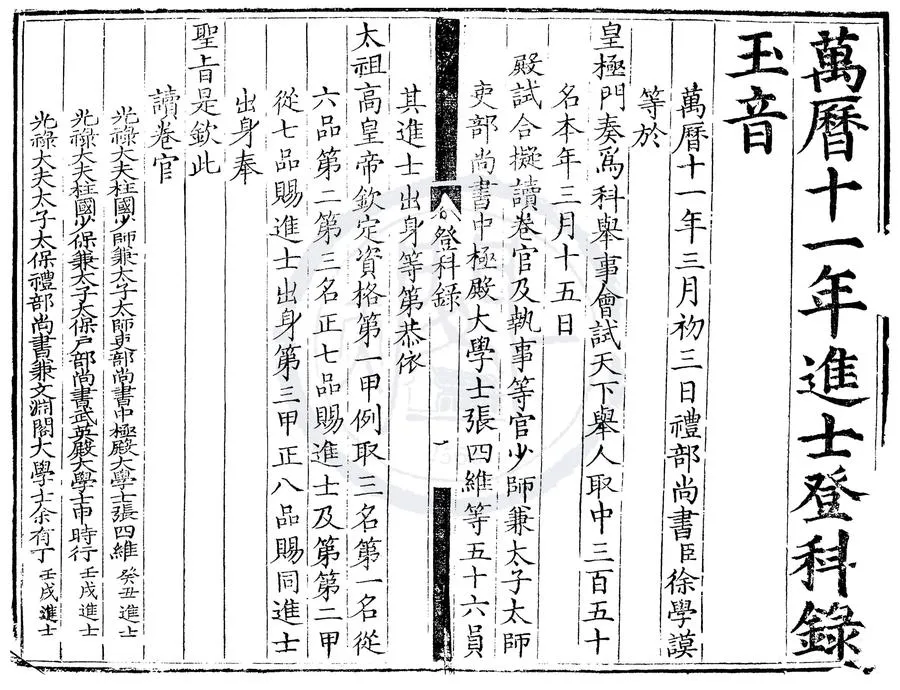 萬曆十一年進士登科錄
玉音
萬曆十一年三月初三日禮部尚書臣徐學謨
等於
皇極門奏爲科舉事會試天下舉人取中三百五十
名本年三月十五日
殿試合擬讀卷官及執事等官少師兼太子太師
吏部尚書中極殿大學士張四維等五十六員
登科錄
一
其進士出身等第恭依
太祖高皇帝欽定資格第一甲例取三名第一名從
六品第二第三名正七品賜進士及第第二甲
從七品賜進士出身第三甲正八品賜同進士
出身奉
聖旨是欽此
讀卷官
光祿大夫柱國少師兼太子太師吏部尚書中極殿大學士張四維 癸丑進士
光祿大夫柱國少保兼太子太保戶部尚書武英殿大學士申時行 壬戌進士
光祿大夫太子太保禮部尚書兼文淵閣大學士余有丁 壬戌進士